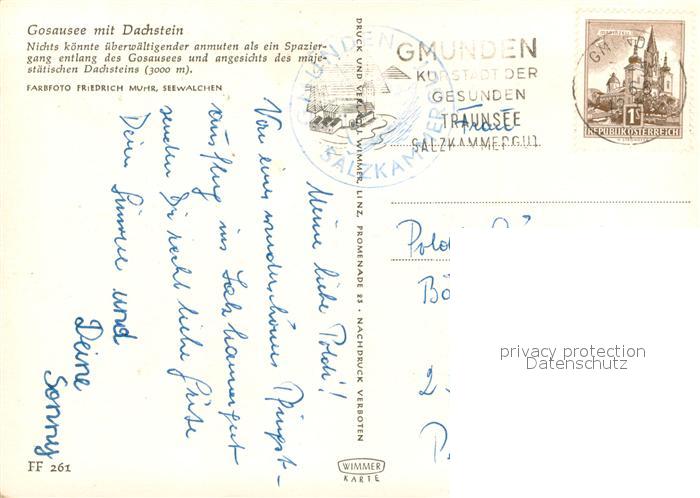 Gosausee mit Dachstein
Nichts könnte überwältigender anmuten als ein Spazier-
gang entlang des Gosausees und angesichts des maje-
stätischen Dachsteins (3000 m).
FARBFOTO FRIEDRICH MUHR, SEEWALCHEN
Meine liebe Poldi!
Von einem wunderschönen Pfingst-
ausflug ins Salzkammergut
senden Dir recht liebe Grüße
Deine und
Deine
Sonny
FF 261
DRUCK UND VERLAG WIMMER, LINZ, PROMENADE 23 · NACHDRUCK VERBOTEN
WIMMER
KARTE
GMUNDEN
SALZKAMMERGUT
GMUNDEN
KURSTADT DER
GESUNDEN
TRAUNSEE
SALZKAMMERGUT
1S
REPUBLIK ÖSTERREICH
Frau
Bö
2-
privacy protection
Datenschutz